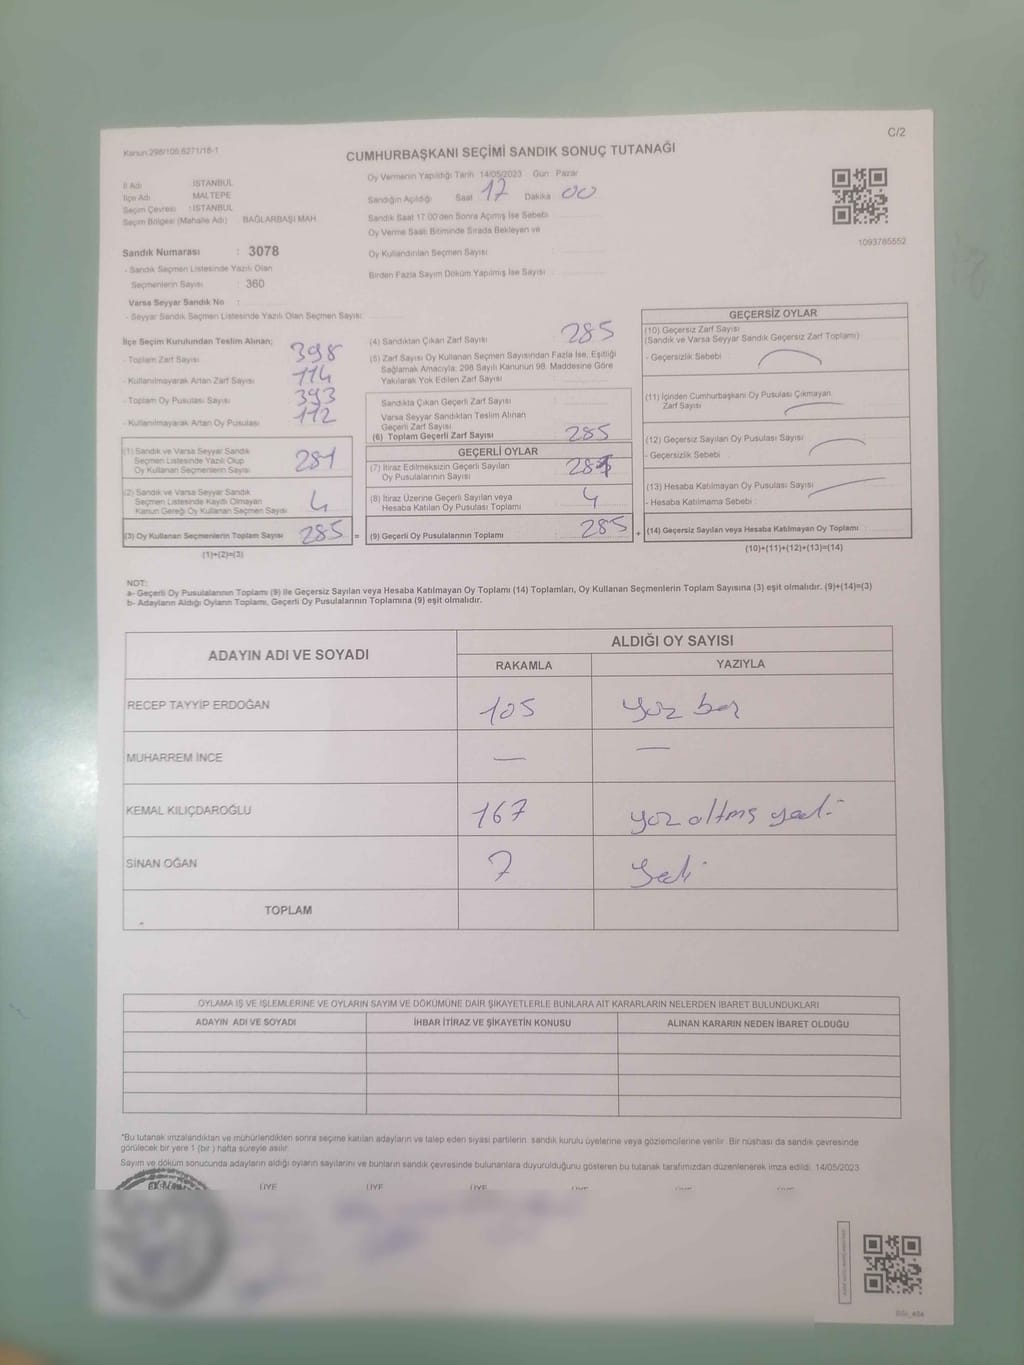 C/2
Kanun:298/106,6271/18-1
CUMHURBAŞKANI SEÇİMİ SANDIK SONUÇ TUTANAĞI
İl Adı : İSTANBUL
İlçe Adı : MALTEPE
Seçim Çevresi : İSTANBUL
Seçim Bölgesi (Mahalle Adı) BAĞLARBAŞI MAH.
Sandık Numarası : 3078
- Sandık Seçmen Listesinde Yazılı Olan
Seçmenlerin Sayısı : 360
Varsa Seyyar Sandık No :
- Seyyar Sandık Seçmen Listesinde Yazılı Olan Seçmen Sayısı:
Oy Vermenin Yapıldığı Tarih 14/05/2023 Gün Pazar
Sandığın Açıldığı Saat 17 Dakika 00
Sandık Saat 17.00'den Sonra Açılmış İse Sebebi :
Oy Verme Saati Bitiminde Sırada Bekleyen ve
Oy Kullandırılan Seçmen Sayısı :
Birden Fazla Sayım Döküm Yapılmış İse Sayısı :
1093785552
İlçe Seçim Kurulundan Teslim Alınan;
- Toplam Zarf Sayısı 398
- Kullanılmayarak Artan Zarf Sayısı 114
- Toplam Oy Pusulası Sayısı 393
- Kullanılmayarak Artan Oy Pusulası 112
(1) Sandık ve Varsa Seyyar Sandık
Seçmen Listesinde Yazılı Olup
Oy Kullanan Seçmenlerin Sayısı 281
(2) Sandık ve Varsa Seyyar Sandık
Seçmen Listesinde Kayıtlı Olmayan
Kanun Gereği Oy Kullanan Seçmen Sayısı 4
(3) Oy Kullanan Seçmenlerin Toplam Sayısı 285 =
(1)+(2)=(3)
(4) Sandıktan Çıkan Zarf Sayısı 285
(5) Zarf Sayısı Oy Kullanan Seçmen Sayısından Fazla İse, Eşitliği
Sağlamak Amacıyla; 298 Sayılı Kanunun 98. Maddesine Göre
Yakılarak Yok Edilen Zarf Sayısı :
Sandıkta Çıkan Geçerli Zarf Sayısı :
Varsa Seyyar Sandıktan Teslim Alınan
Geçerli Zarf Sayısı
(6) Toplam Geçerli Zarf Sayısı 285
GEÇERLİ OYLAR
(7) İtiraz Edilmeksizin Geçerli Sayılan
Oy Pusulalarının Sayısı
(8) İtiraz Üzerine Geçerli Sayılan veya
Hesaba Katılan Oy Pusulası Toplamı 4
(9) Geçerli Oy Pusulalarının Toplamı 285 +
GEÇERSİZ OYLAR
(10) Geçersiz Zarf Sayısı
(Sandık ve Varsa Seyyar Sandık Geçersiz Zarf Toplamı) :
- Geçersizlik Sebebi :
(11) İçinden Cumhurbaşkanı Oy Pusulası Çıkmayan
Zarf Sayısı :
(12) Geçersiz Sayılan Oy Pusulası Sayısı :
- Geçersizlik Sebebi :
(13) Hesaba Katılmayan Oy Pusulası Sayısı :
- Hesaba Katılmama Sebebi :
(14) Geçersiz Sayılan veya Hesaba Katılmayan Oy Toplamı :
(10)+(11)+(12)+(13)=(14)
NOT:
a- Geçerli Oy Pusulalarının Toplamı (9) ile Geçersiz Sayılan veya Hesaba Katılmayan Oy Toplamı (14) Toplamları, Oy Kullanan Seçmenlerin Toplam Sayısına (3) eşit olmalıdır. (9)+(14)=(3)
b- Adayların Aldığı Oyların Toplamı, Geçerli Oy Pusulalarının Toplamına (9) eşit olmalıdır.
ADAYIN ADI VE SOYADI
ALDIĞI OY SAYISI
RAKAMLA YAZIYLA
RECEP TAYYİP ERDOĞAN 105 yüz beş
MUHARREM İNCE — —
KEMAL KILIÇDAROĞLU 167 yüz altmış yedi
SİNAN OĞAN 7 yedi
TOPLAM
OYLAMA İŞ VE İŞLEMLERİNE VE OYLARIN SAYIM VE DÖKÜMÜNE DAİR ŞİKAYETLERLE BUNLARA AİT KARARLARIN NELERDEN İBARET BULUNDUKLARI
ADAYIN ADI VE SOYADI İHBAR İTİRAZ VE ŞİKAYETİN KONUSU ALINAN KARARIN NEDEN İBARET OLDUĞU
*Bu tutanak imzalandıktan ve mühürlendikten sonra seçime katılan adayların ve talep eden siyasi partilerin sandık kurulu üyelerine veya gözlemcilerine verilir. Bir nüshası da sandık çevresinde
görülecek bir yere 1 (bir ) hafta süreyle asılır.
Sayım ve döküm sonucunda adayların aldığı oyların sayılarını ve bunların sandık çevresinde bulunanlara duyurulduğunu gösteren bu tutanak tarafımızdan düzenlenerek imza edildi. 14/05/2023
ÜYE ÜYE ÜYE